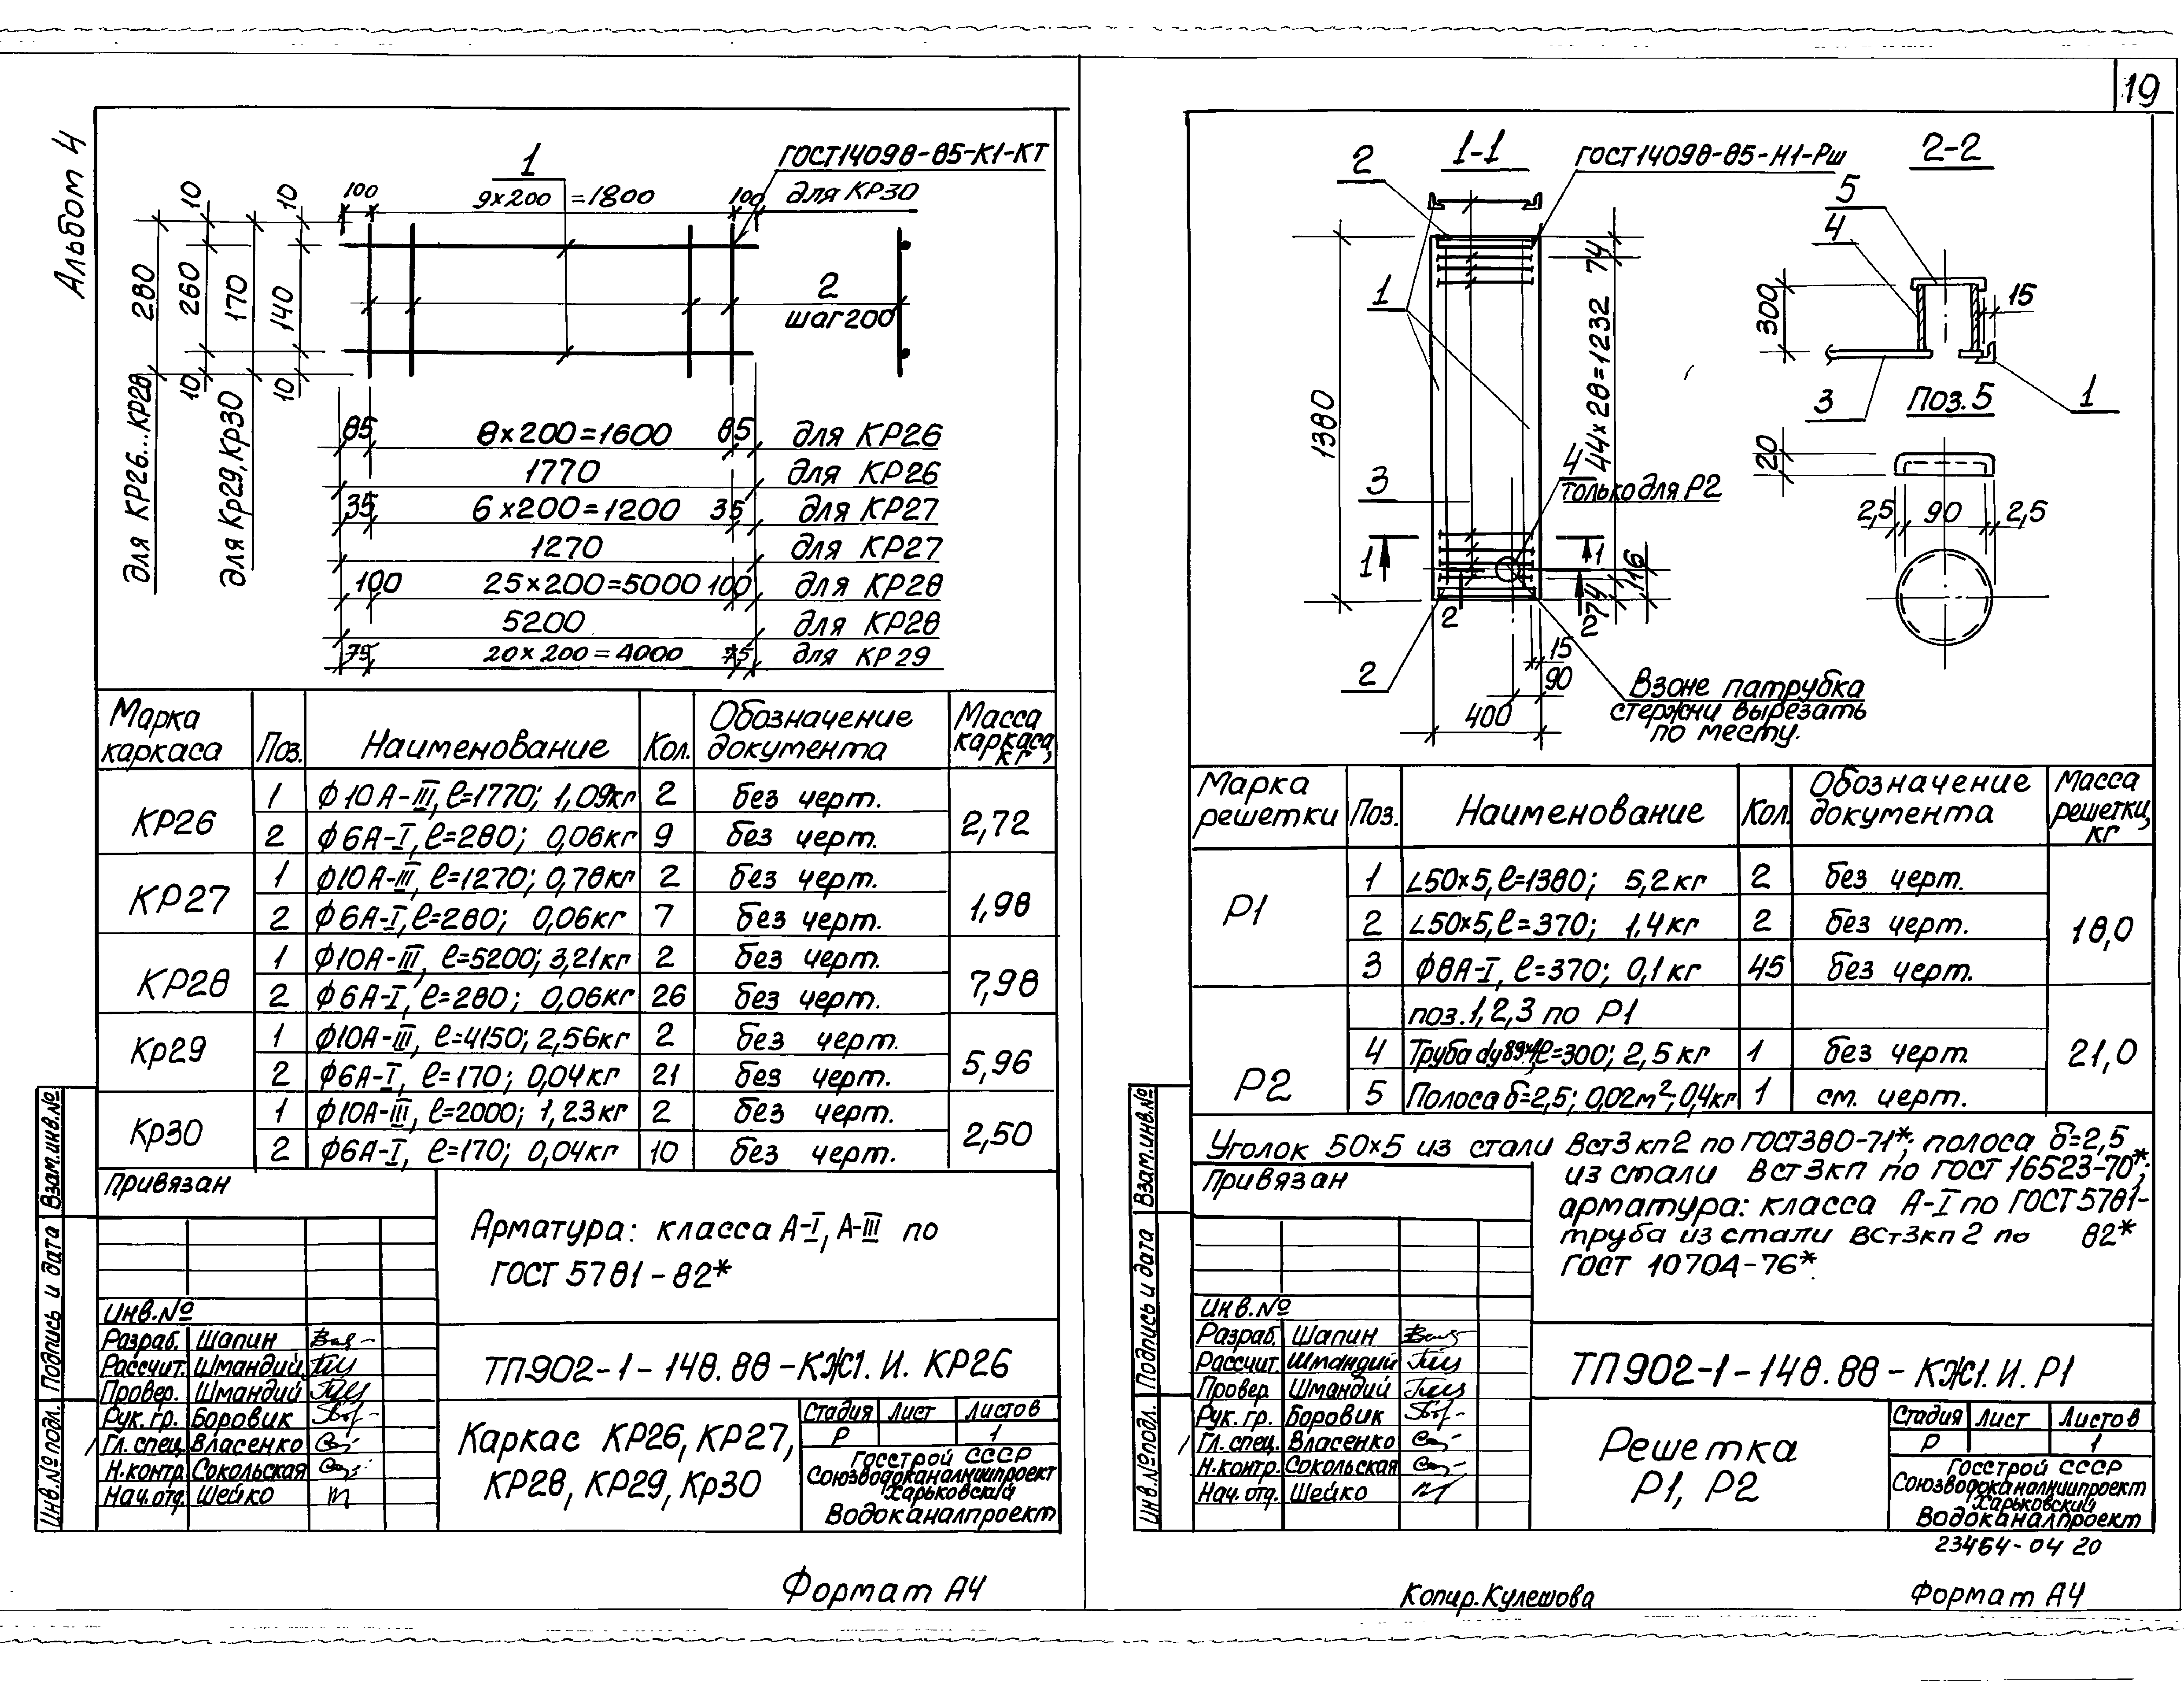 19
Альбом 4
1
ГОСТ14098-85-К1-КТ
100
9х200 =1800
100
для КР30
10
10
280
260
170
140
10
10
для КР26...КР28
для Кр29,Кр30
2
шаг200
85 8х200=1600 85 для КР26
1770 для КР26
35 6х200=1200 35 для КР27
1270 для КР27
100 25х200=5000 100 для КР28
5200 для КР28
75 20х200=4000 75 для КР29
Марка каркаса Поз. Наименование Кол. Обозначение документа Масса каркаса, кг
КР26 1 ф10А-III, ℓ=1770; 1,09кг 2 без черт. 2,72
2 ф6А-I, ℓ=280; 0,06кг 9 без черт.
КР27 1 ф10А-III, ℓ=1270; 0,78кг 2 без черт. 1,98
2 ф6А-I, ℓ=280; 0,06кг 7 без черт.
КР28 1 ф10А-III, ℓ=5200; 3,21кг 2 без черт. 7,98
2 ф6А-I, ℓ=280; 0,06кг 26 без черт.
Кр29 1 ф10А-III, ℓ=4150; 2,56кг 2 без черт. 5,96
2 ф6А-I, ℓ=170; 0,04кг 21 без черт.
Кр30 1 ф10А-III, ℓ=2000; 1,23кг 2 без черт. 2,50
2 ф6А-I, ℓ=170; 0,04кг 10 без черт.
Привязан
Арматура: класса А-I, А-III по
ГОСТ 5781-82*
Инв.№
Разраб. Шапин
Рассчит. Шмандий
Провер. Шмандий
Рук. гр. Боровик
Гл. спец. Власенко
Н.контр Сокольская
Нач.отд. Шейко
ТП902-1-148.88-КЖ1.И.КР26
Каркас КР26, КР27,
КР28, КР29, Кр30
Стадия Лист Листов
Р 1
Госстрой СССР
Союзводоканалниипроект
Харьковский
Водоканалпроект
Взам.инв.№
Подпись и дата
Инв.№подл.
Формат А4
2
1-1
ГОСТ14098-85-Н1-Рш
2-2
5
4
300
15
3
1
1
1380
74
44х28=1232
4
только для Р2
3
1
1
116
74
2
2
15
90
400
2
Взоне патрубка
стержни вырезать
по месту.
Поз.5
20
2,5 90 2,5
Марка решетки Поз. Наименование Кол. Обозначение документа Масса решетки, кг
Р1 1 L50х5, ℓ=1380; 5,2кг 2 без черт. 18,0
2 L50х5, ℓ=370; 1.4кг 2 без черт.
3 ф8А-I, ℓ=370; 0,1кг 45 без черт.
Р2 поз.1,2,3 по Р1 21,0
4 Труба dу ℓ=300; 2,5кг 1 без черт
5 Полоса δ=2,5; 0,02м²; 0,4кг 1 см. черт.
Уголок 50х5 из стали Вст3кп2 по ГОСТ380-71*; полоса δ=2,5
из стали Вст3кп по ГОСТ 16523-70*;
арматура: класса А-I по ГОСТ5781-
82*
труба из стали ВСт3кп2 по
ГОСТ 10704-76*
Привязан
Инв.№
Разраб. Шапин
Рассчит. Шмандий
Провер Шмандий
Рук. гр. Боровик
Гл. спец. Власенко
Н.контр. Сокольская
Нач. отд. Шейко
ТП902-1-148.88-КЖ1.И.Р1
Решетка
Р1, Р2
Стадия Лист Листов
Р 1
Госстрой СССР
Союзводоканалниипроект
Харьковский
Водоканалпроект
Взам.инв.№
Подпись и дата
Инв.№подл.
23464-04 20
Копир.Кулешова
Формат А4